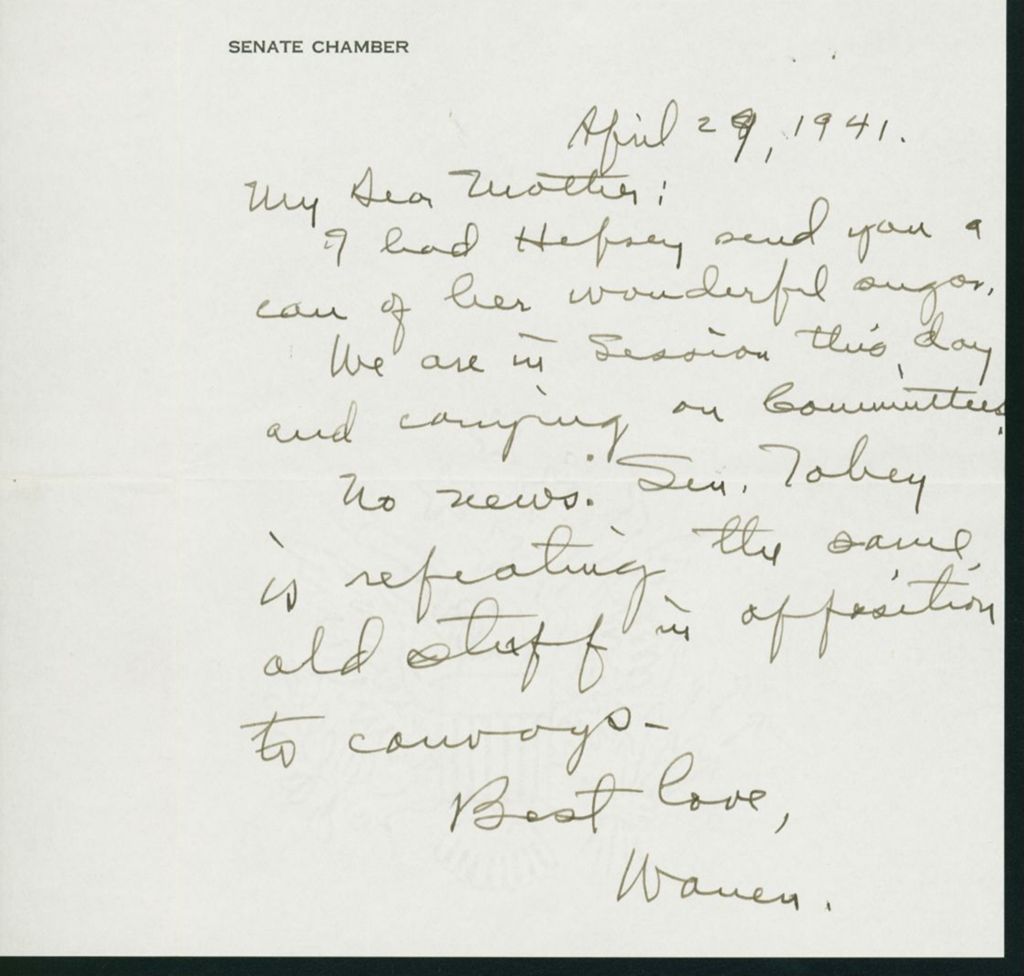 SENATE CHAMBER
April 29, 1941.
My Dear Mother:
I had Hepsey send you a
can of her wonderful sugar.
We are in Session this day
and carrying on Committees.
No news. Sen. Tobey
is repeating the same
old stuff in opposition
to convoys-
Best love,
Warren.